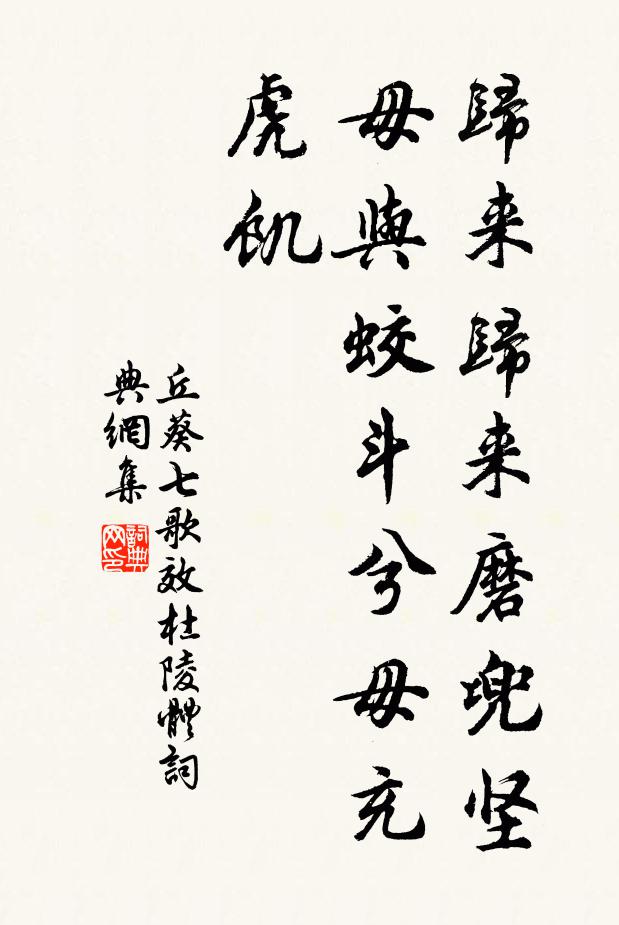 歸来歸来磨兜坚
毋與蛟斗兮毋充
虎飢
丘葵七歌效杜陵體詞
典網集
詞典
网印